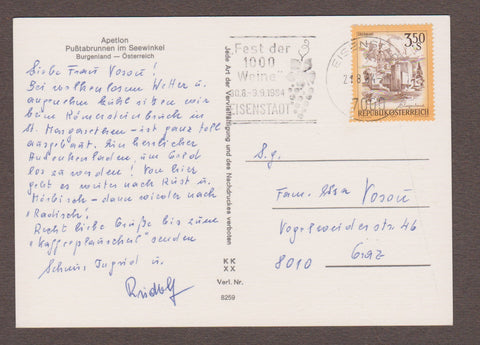 Apetlon
Pußtabrunnen im Seewinkel
Burgenland — Österreich
Liebe Frau Vosou!
Bei wolkenlosem Wetter u.
angenehm kühl sitzen wir
beim Römersteinbruch in
St. Margarethen – ist ganz toll
ausgebaut. Ein herrlicher
Andenkenladen, um Geld
los zu werden! Von hier
geht es weiter nach Rust u.
Mörbisch – dann wieder nach
"Radisch".
Recht liebe Grüße bis zum
"Kaffeeplauscherl" senden
Ingrid u.
Rudolf
Jede Art der Vervielfältigung und des Nachdruckes verboten
KK
XX
Verl. Nr.
8259
"Fest der
1000
Weine"
30.8.-9.9.1984
EISENSTADT
EISENST
7000
3.50
S
REPUBLIK ÖSTERREICH
S.g.
Fam. Vosou
Vogelweiderstr. 46
8010 Graz